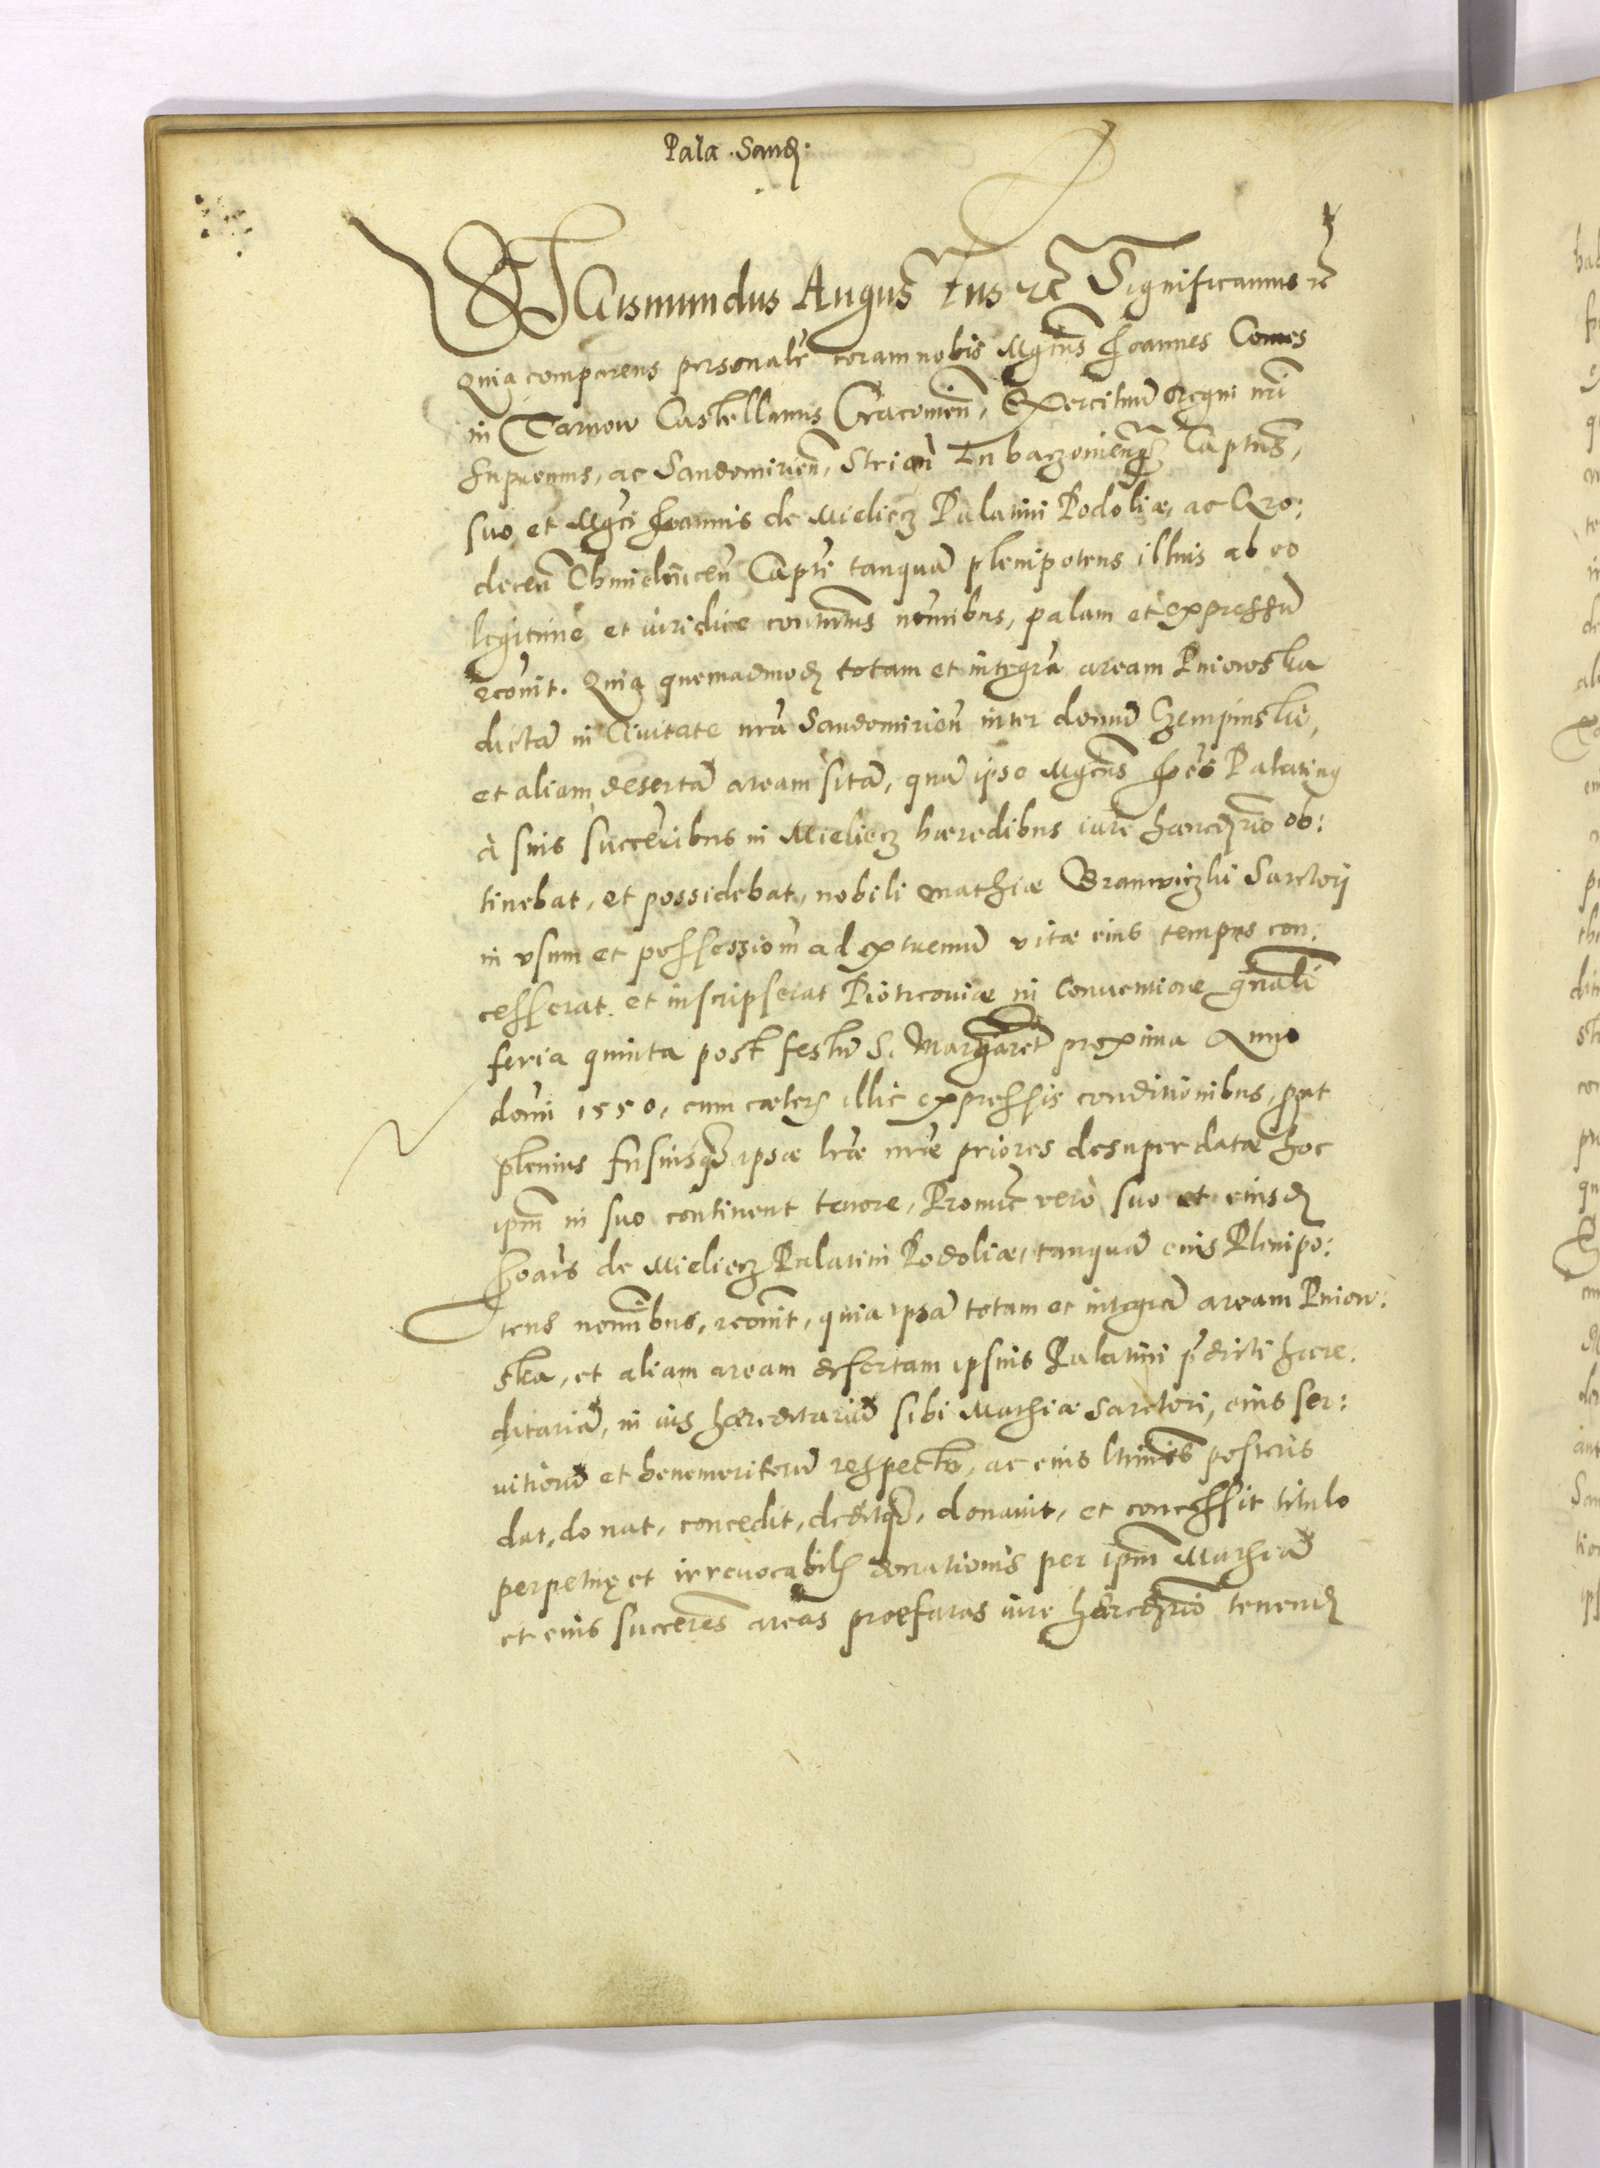 Pala. Sand.
SIGismundus Augustus etc Significamus etc
Quia comparens personalr coram nobis Mgcus Joannes Comes
in Tarnow Castellanus Cracovien, Exercituu Regni nri
supremus, ac Sandomirien, Strien Lubaczovienq Captus,
suo et Mgci Joannis de Mieliecz Palatini Podoliæ, ac Gro:
decen Chmielnicen Captr tanqua plenipotens illius ab eo
legitime et iuridice contitutus nomibus, palam et expressu
recovit. Quia quemadmod totam et integra aream Pniowska
dicta in Civitate nra Sandomirien inter domu Czempinski,
et aliam deserta aream sita, qua ipse Mgcus Joes Palatinus
à suis succeribus in Mieliecz hæredibus iure hæredrio ob:
tinebat, et possidebat, nobili Mathiæ Branwiczki Sartori
in usum et possession ad extremu vitæ eius tempus con:
cesserat et inscripserat Piotrcoviæ in Conventione gnali
feria quinta post festu S. Margaret proxima Anno
domi 1550, cum cæters illic expressis conditionibus, put
plenius fusiusq ipsæ lræ nræ priores desuper datæ hoc
ipm in suo continent tenore, Promic vero suo et eiusd
Joais de Mielicz Palatini Podoliæ, tanqua eius Plenipo:
tens nomibus, recovit, quia ipsa totam et integra aream Pniow:
ska, et aliam aream desertam ipsius Palatini pdicti hære:
ditaria, in ius hæreditariu sibi Mathiæ Sartori, eius ser:
vitioru et benemeritoru respectu, ac eius ltimis posteris
dat, donat, concedit, deditq, donavit, et concessit titulo
perpetuę et irrevocabils donationis per ipm Mathia
et eius succeres areas præfatas iure hæredrio tenend